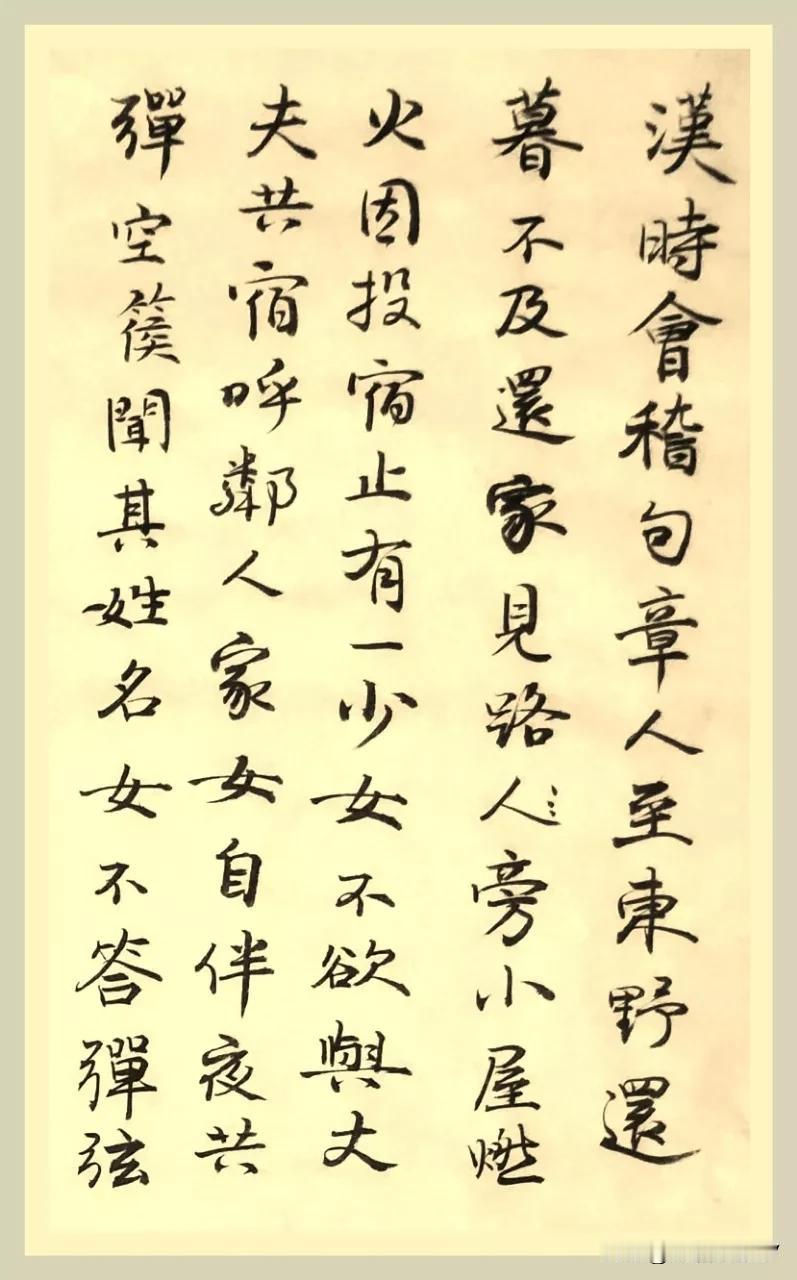 漢時會稽句章人至東野還
暮不及還家見路人旁小屋燃
火因投宿止有一少女不欲與丈
夫共宿呼鄰人家女自伴夜共
彈空篌聞其姓名女不答彈弦